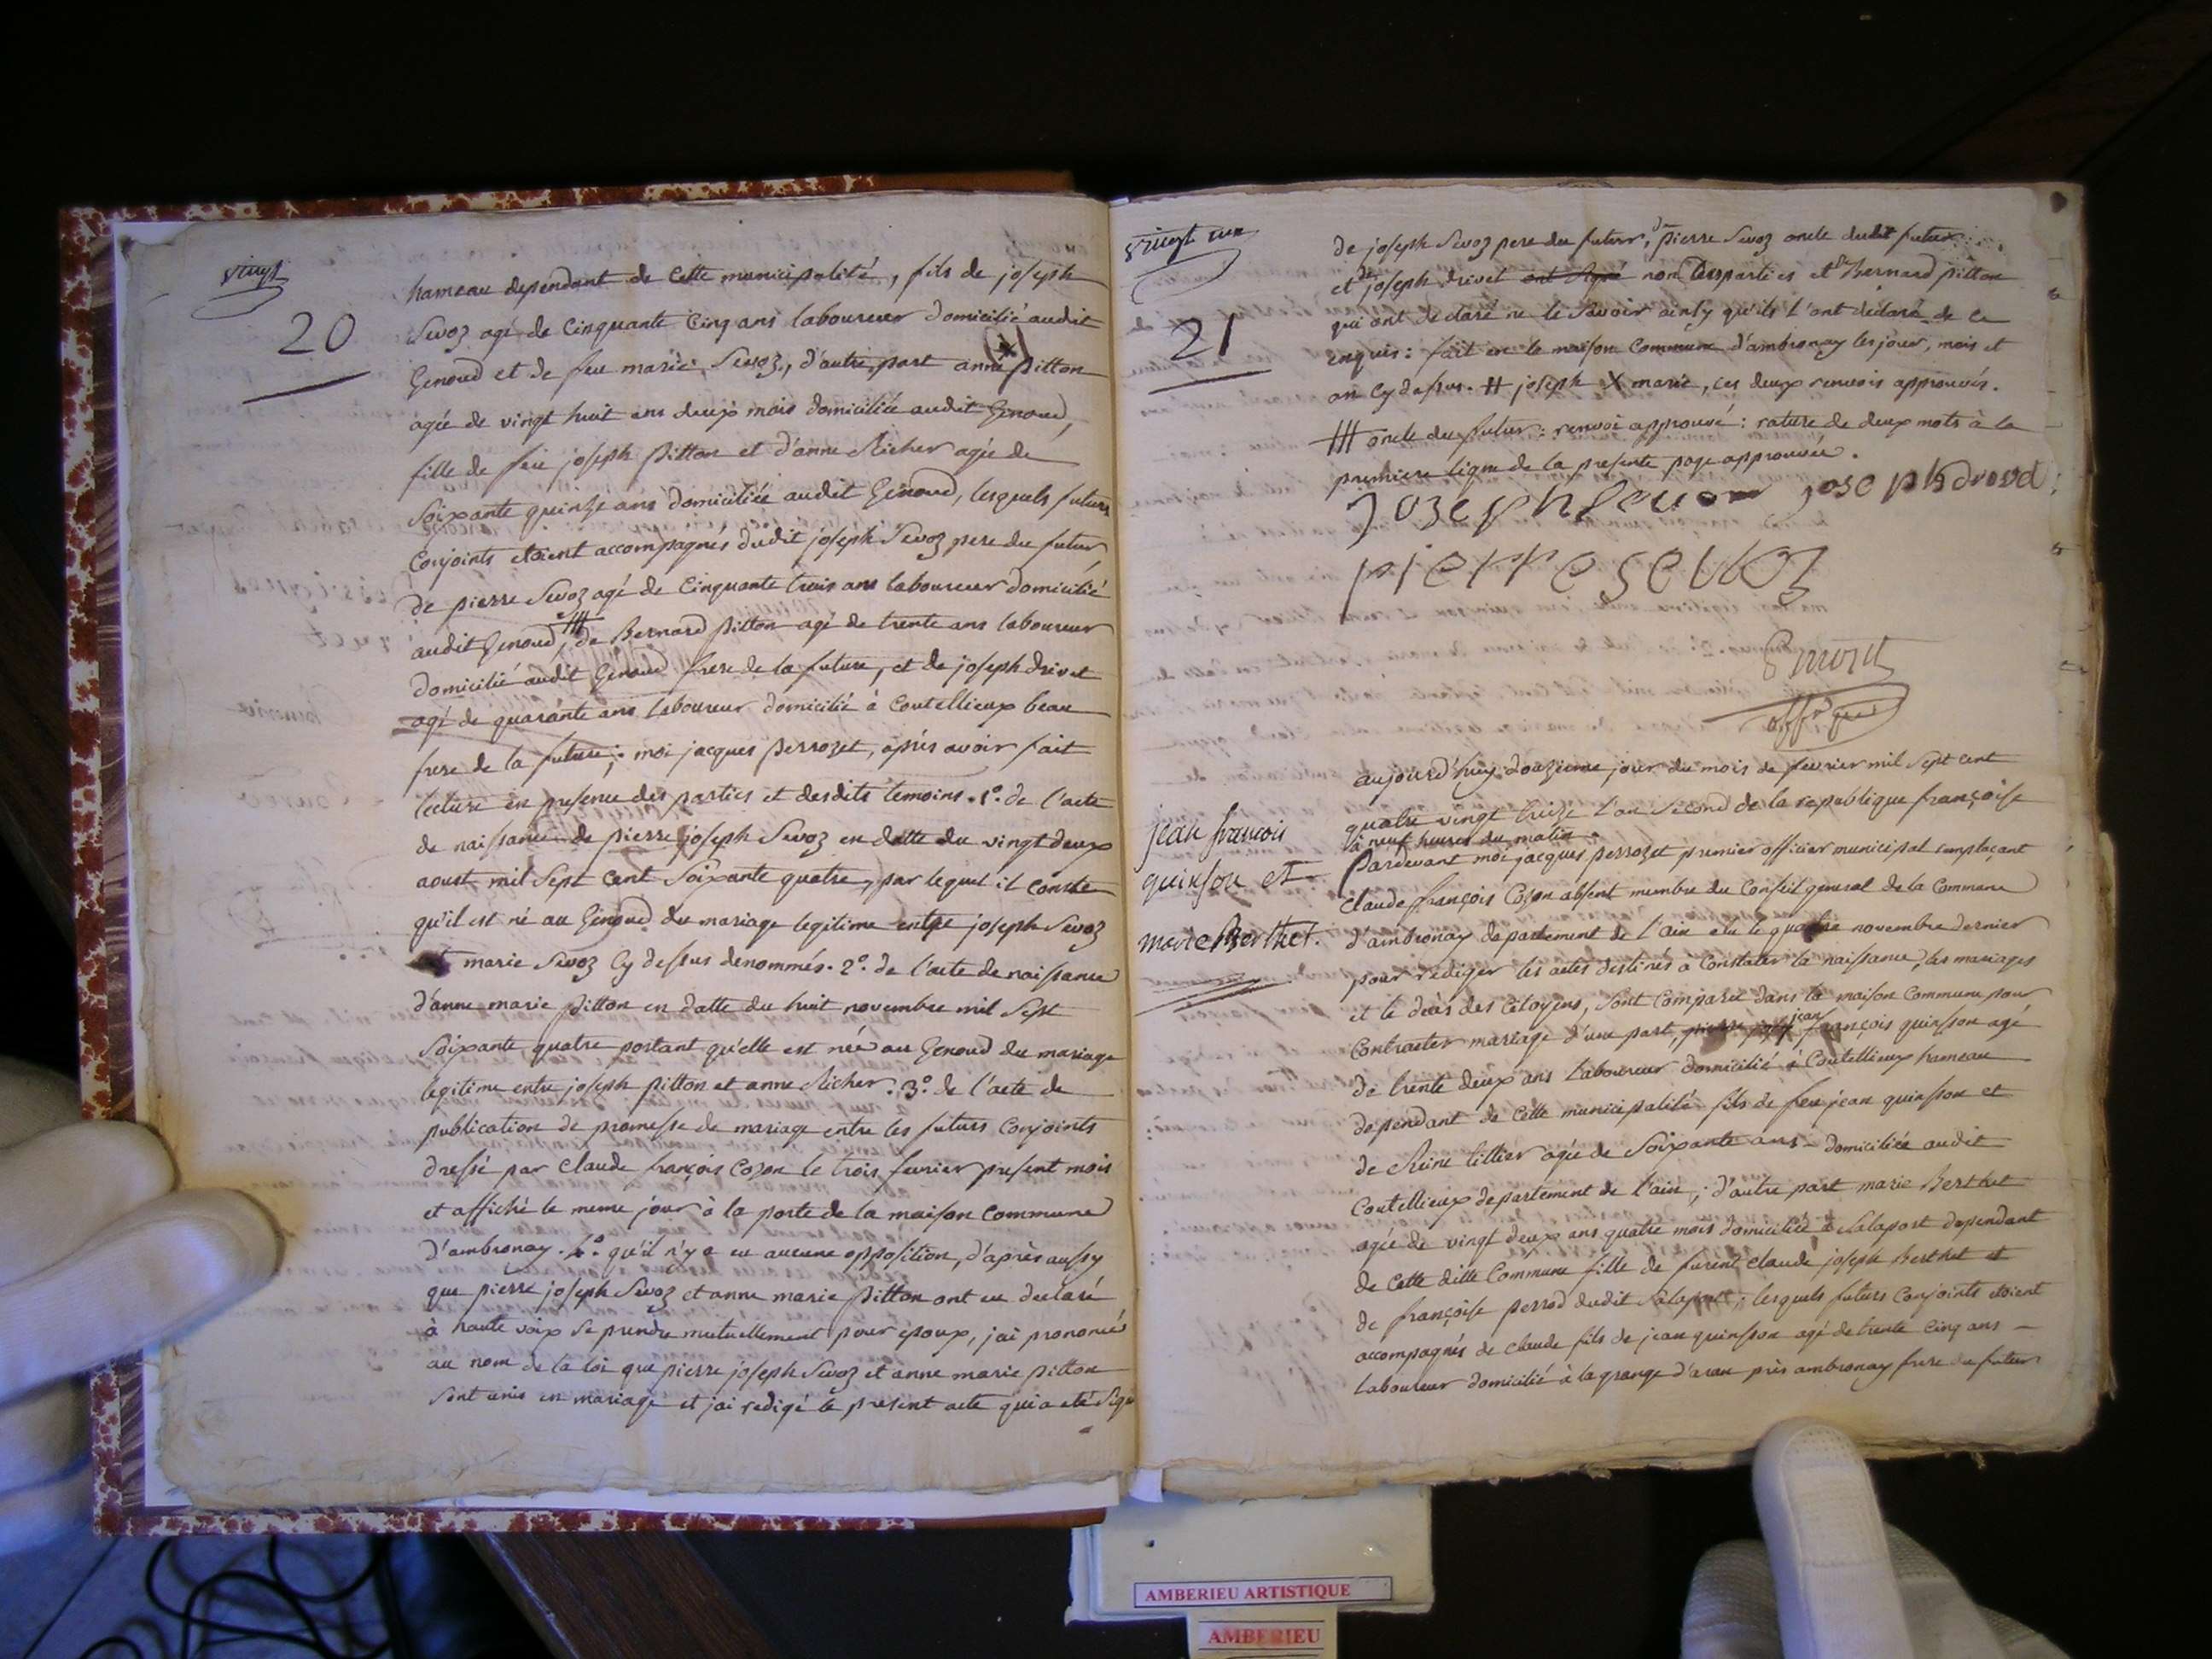 vingt
20
hameau dependant de cette municipalité, fils de joseph
Sevoz agé de Cinquante Cinq ans laboureur domicilié audit
Genoud et de feu marie Sevoz, d'autre part anne X pitton
agée de vingt huit ans deux mois domiciliée audit Genoud,
fille de feu joseph pitton et d'anne Richer agée de
Soixante quinze ans domiciliée audit Genoud, lesquels futurs
Conjoints etoient accompagnés dudit joseph Sevoz pere du futur,
de pierre Sevoz agé de Cinquante trois ans laboureur domicilié
audit Genoud, # de Bernard pitton agé de trente ans laboureur
domicilié audit Genoud frere de la future, et de joseph drivet
agé de quarante ans laboureur domicilié à Coutellieux beau
frere de la future; moi jacques perrozet, après avoir fait
lecture en presence des parties et desdits temoins. 1°. de l'acte
de naissance de pierre joseph Sevoz en datte du vingt deux
aoust mil Sept Cent Soixante quatre, par lequel il conste
qu'il est né au Genoud du mariage legitime entre joseph Sevoz
et marie Sevoz Cy dessus denommés. 2°. de l'acte de naissance
d'anne marie pitton en datte du huit novembre mil Sept
Soixante quatre portant qu'elle est née au Genoud du mariage
legitime entre joseph pitton et anne Richer. 3°. de l'acte de
publication de promesse de mariage entre les futurs Conjoints
dressé par Claude françois Cozon le trois fevrier present mois
et affiché le meme jour à la porte de la maison Commune
d'ambronay. 4°. qu'il n'y a eu aucune opposition, d'après aussy
que pierre joseph Sevoz et anne marie pitton ont eu declaré
à haute voix Se prendre mutuellement pour epoux, j'ai prononcé
au nom de la loi que pierre joseph Sevoz et anne marie pitton
Sont unis en mariage et j'ai redigé le present acte qui a eté Signé
vingt un
21
de joseph Sevoz pere du futur, de pierre Sevoz oncle dudit futur
et de joseph drivet ont Signé non les parties et Bernard pitton
qui ont declaré ne le Savoir ainsy qu'ils l'ont declaré de ce
enquis: fait en la maison Commune d'ambronay les jour, mois et
an Cy dessus. # joseph X marie, ces deux renvois approuvés.
# oncle du futur: renvoi approuvé: rature de deux mots à la
premiere ligne de la presente page approuvée.
joseph drivet
pierre sevoz
jean françois
quinson et
marie Berthet.
aujourd'huy douzieme jour du mois de fevrier mil Sept cent
quatre vingt treize l'an Second de la republique françoise
à neuf heures du matin.
Pardevant moi jacques perrozet premier officier municipal remplaçant
Claude françois Cozon absent membre du Conseil general de la Commune
d'ambronay departement de l'ain elu le quatre novembre dernier
pour rediger les actes destinés à Constater la naissance, les mariages
et le deces des Citoyens, Sont Comparu dans la maison Commune pour
Contracter mariage d'une part, jean françois quinson agé
de trente deux ans laboureur domicilié à Coutellieux hameau
dependant de cette municipalité fils de feu jean quinson et
de Reine tillier agée de Soixante ans domiciliée audit
Coutellieux departement de l'ain; d'autre part marie Berthet
agée de vingt deux ans quatre mois domiciliée à Salapost dependant
de cette ditte Commune fille de furent claude joseph Berthet et
de françoise perrod dudit Salapost; lesquels futurs Conjoints etoient
accompagnés de claude fils de jean quinson agé de trente cinq ans
laboureur domicilié à la grange d'aran près ambronay frere du futur
AMBERIEU ARTISTIQUE
AMBERIEU